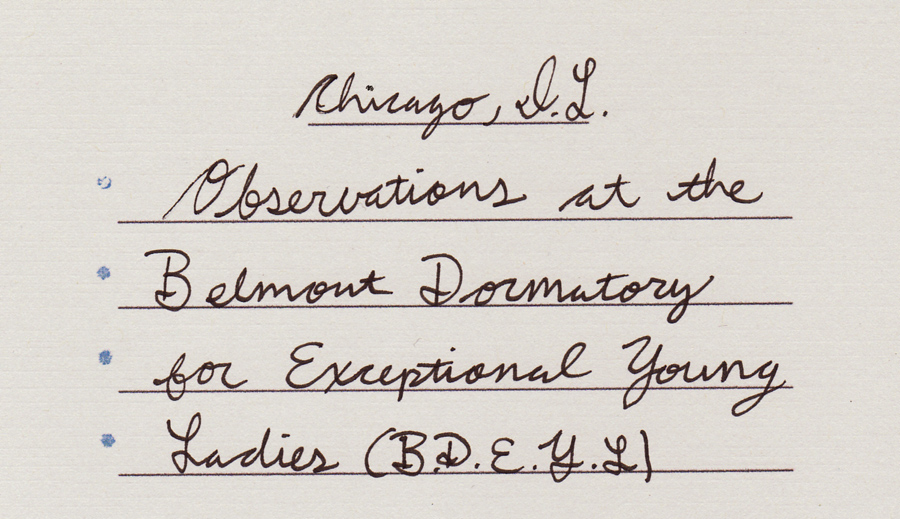 Chicago, I.L.
Observations at the
Belmont Dormatory
for Exceptional Young
Ladies (B.D.E.Y.L)